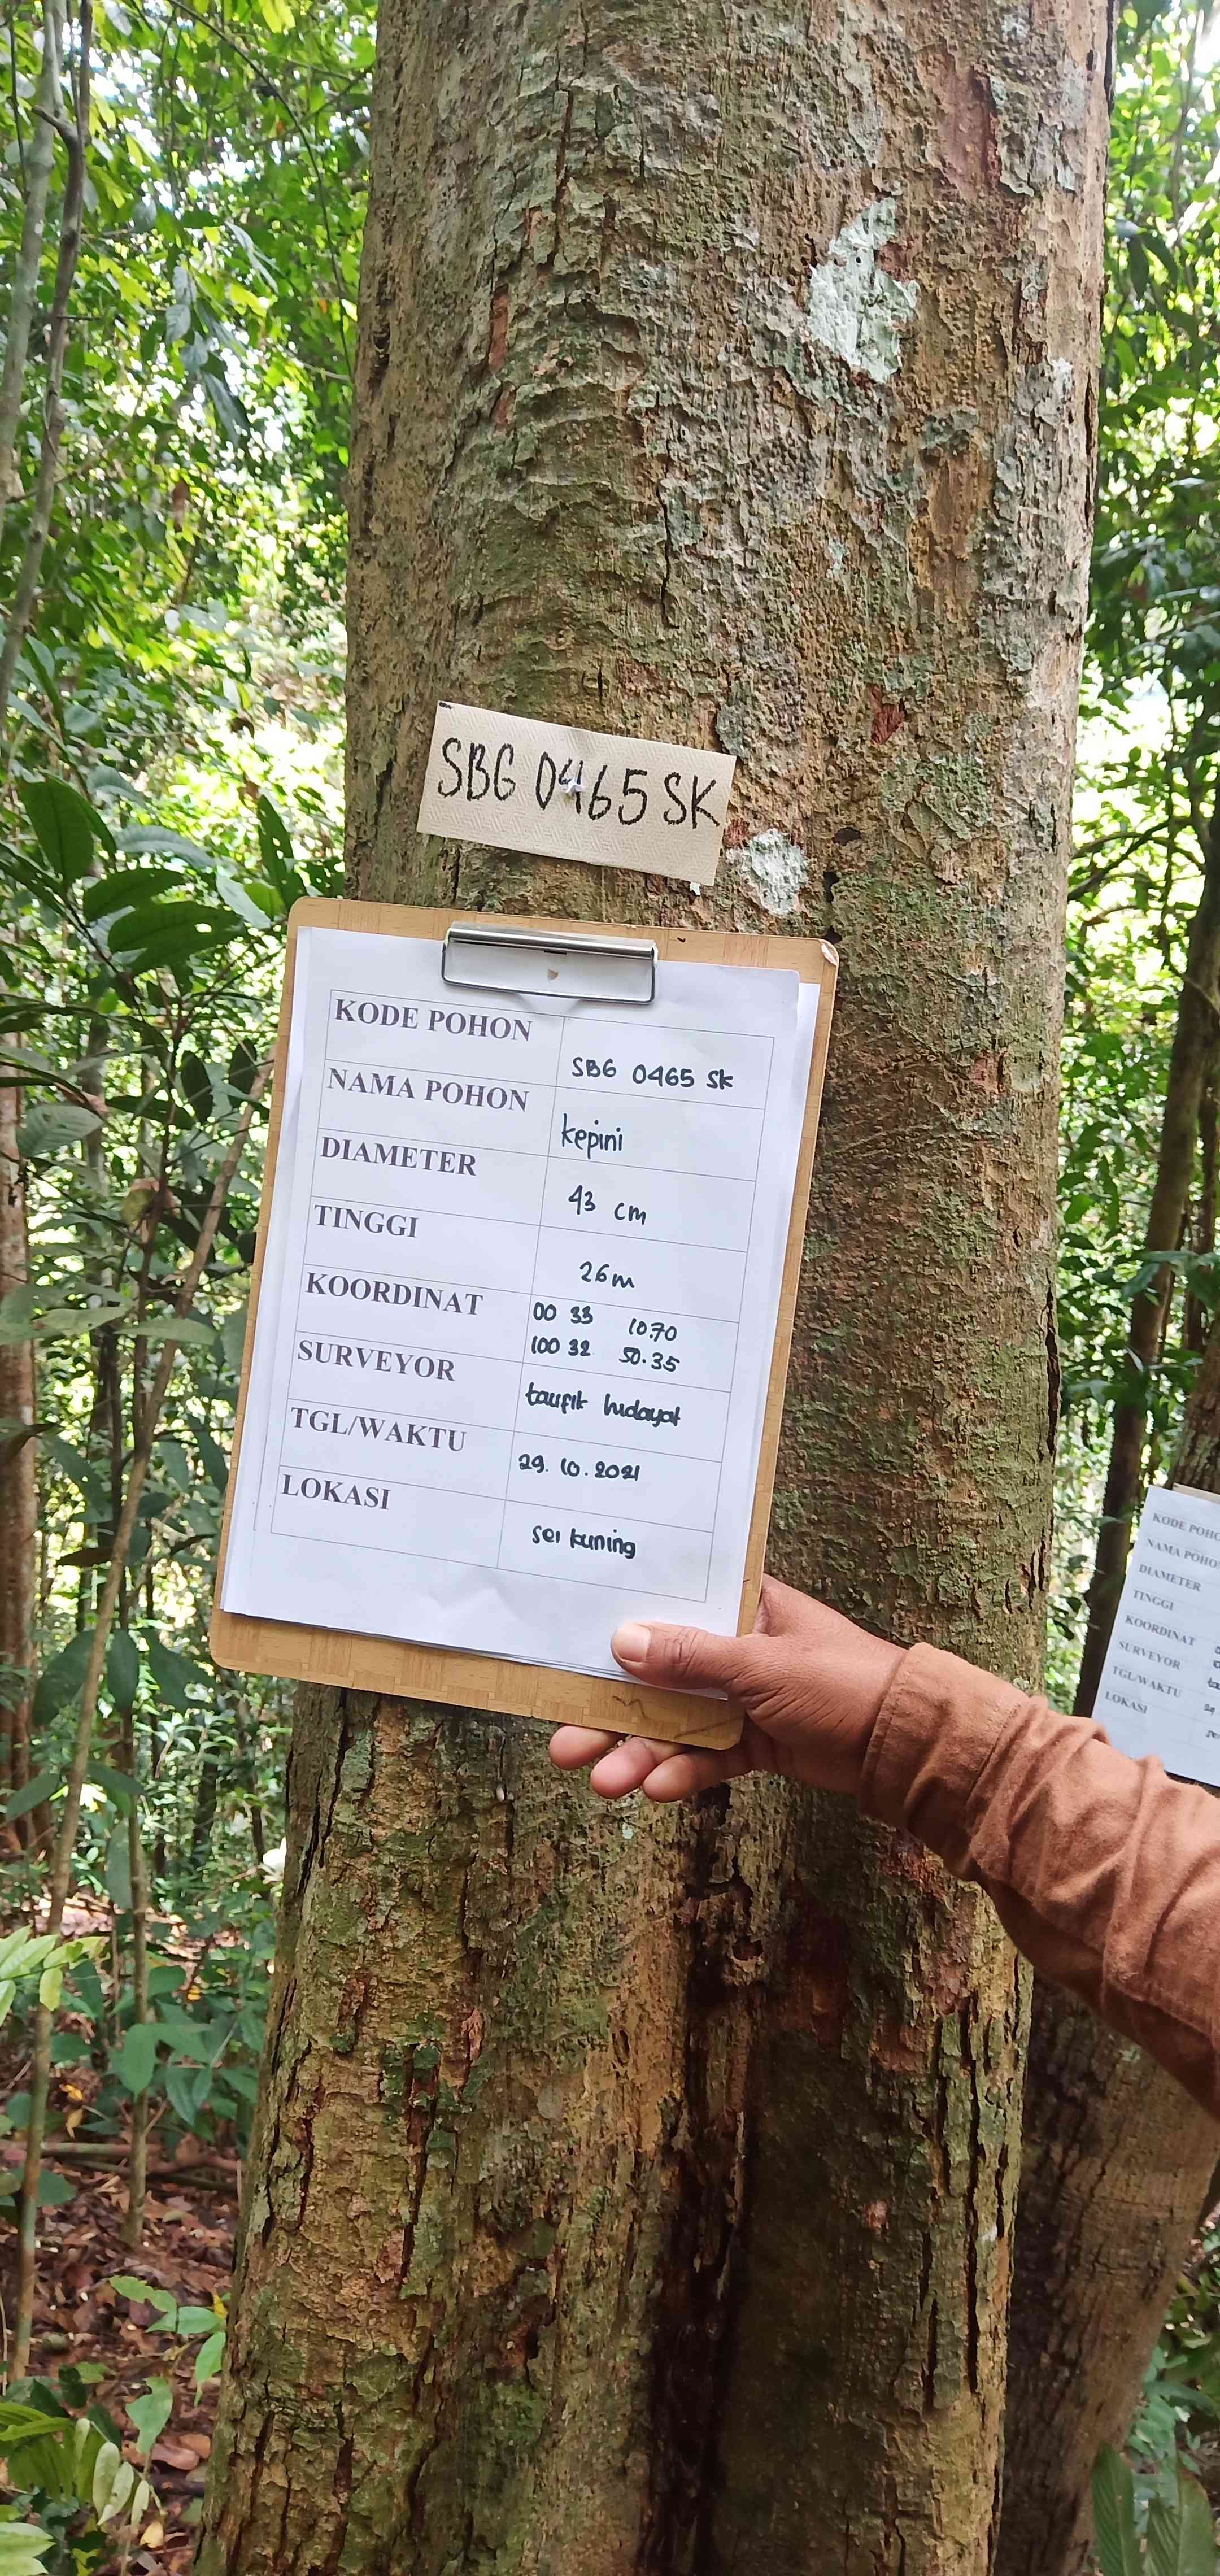 SBG 0465 SK
KODE POHON SBG 0465 SK
NAMA POHON kepini
DIAMETER 43 cm
TINGGI 26 m
KOORDINAT 00 33 10.70
100 32 50.35
SURVEYOR taufik hidayat
TGL/WAKTU 29.10.2021
LOKASI sei kuning
KODE POHO
NAMA POHO
DIAMETER
TINGGI
KOORDINAT
SURVEYOR
TGL/WAKTU
LOKASI